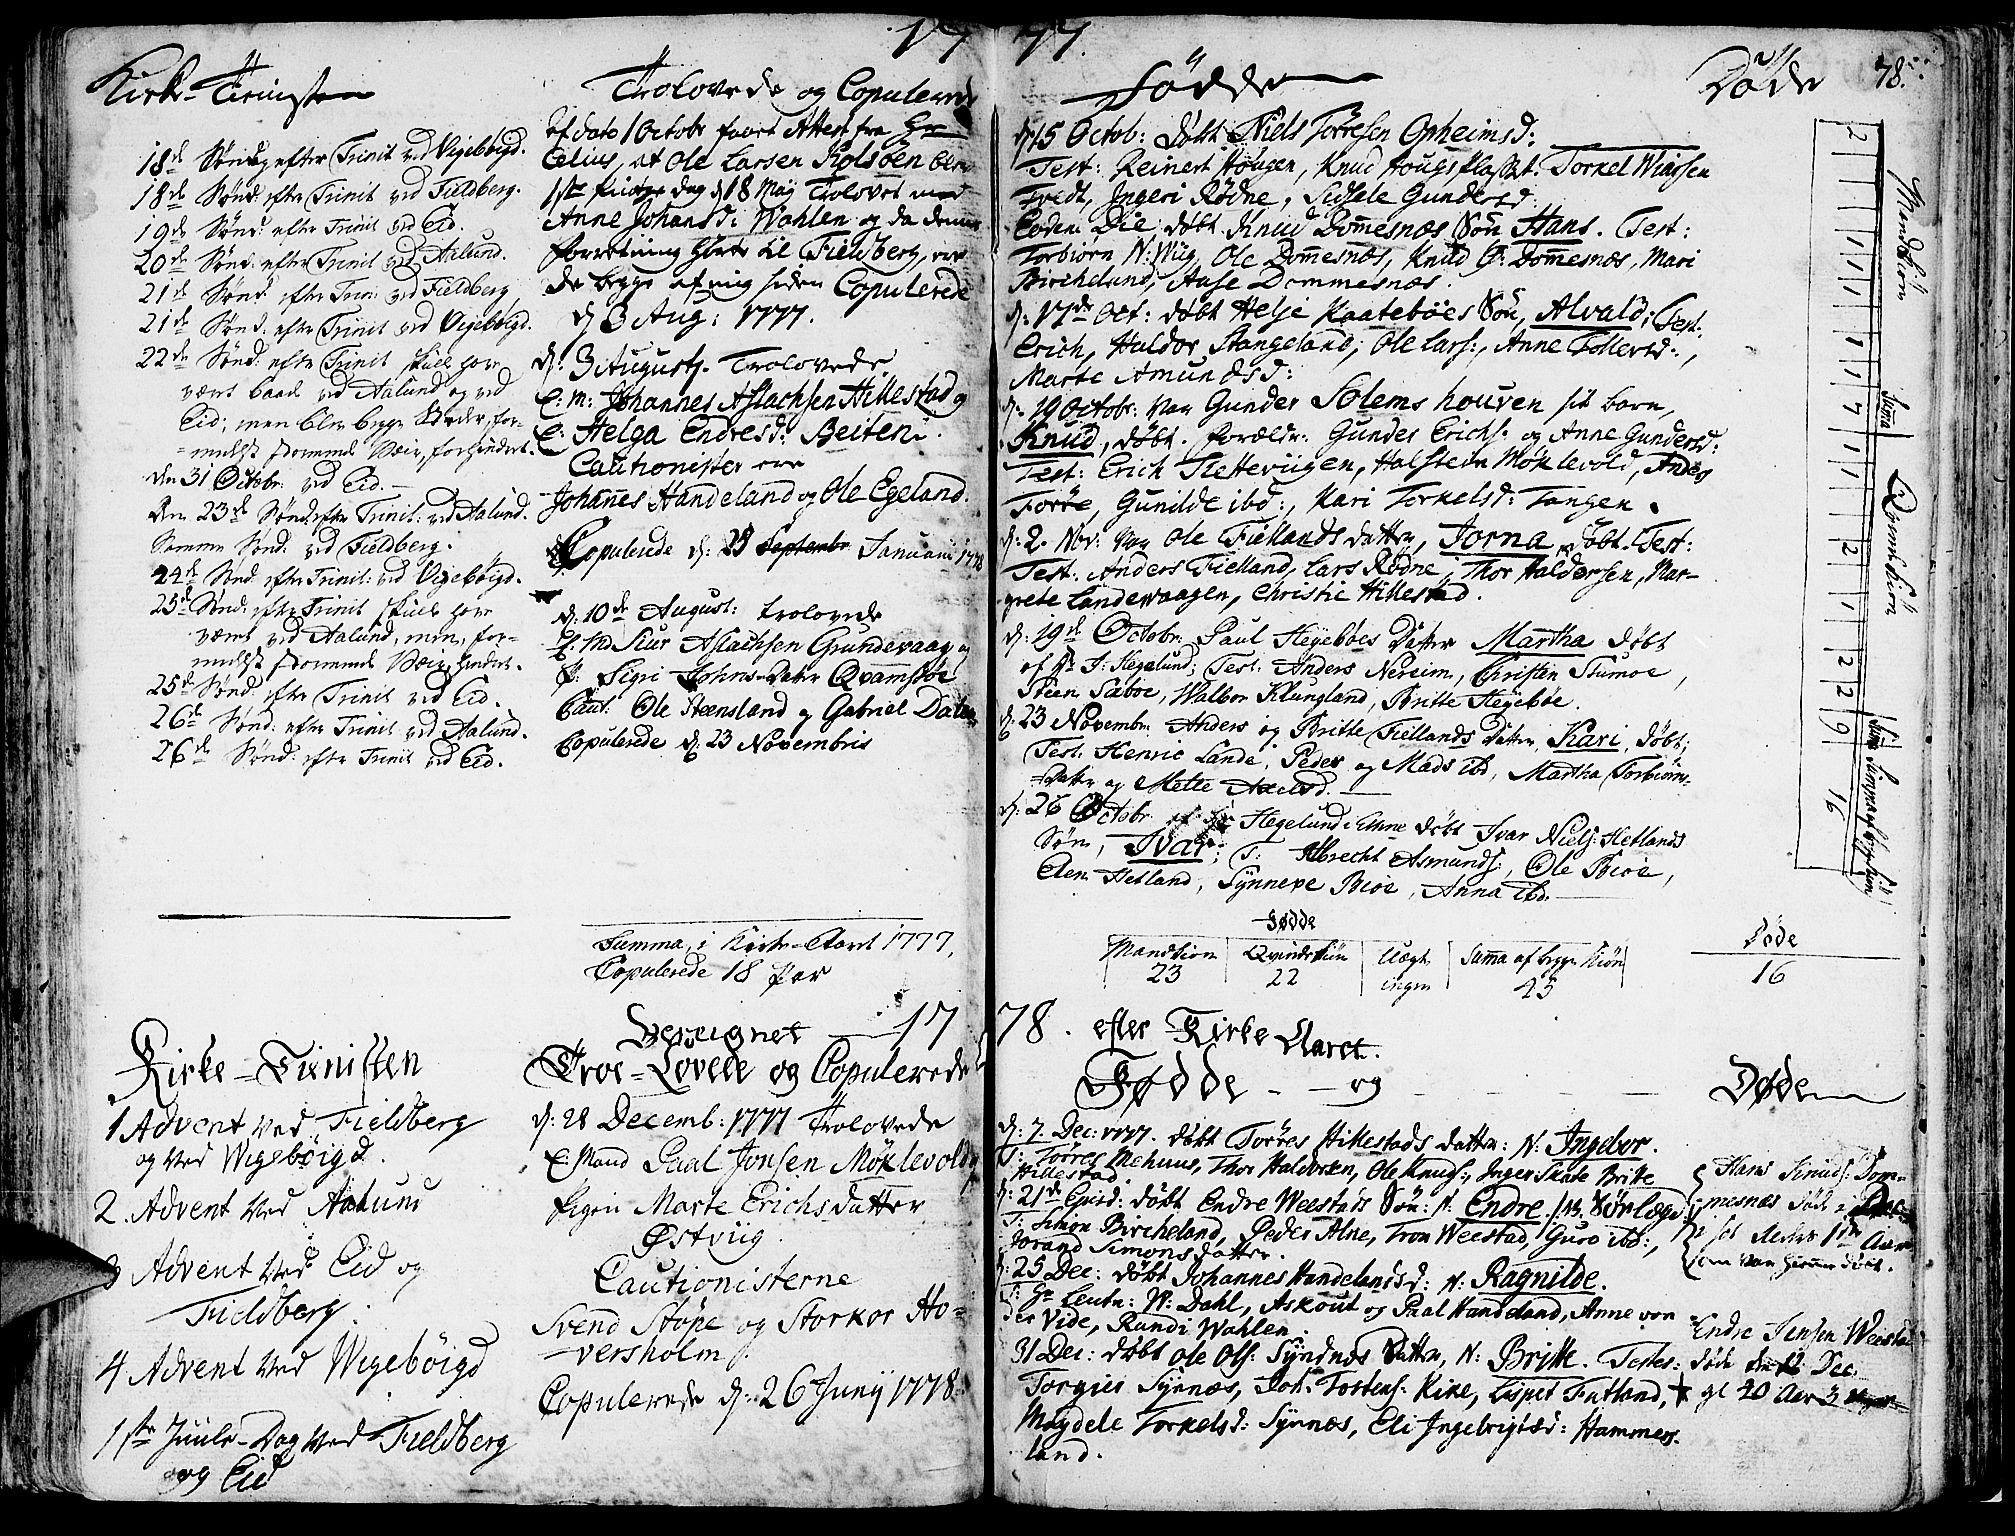 1777.
Kirke-Tienisten
18de Sønd: efter Trinit ved Vigebøigd.
18de Sønd: efter Trinit ved Fieldberg.
19de Sønd: efter Trinit ved Eid.
20de Sønd: efter Trinit ved Aalund.
21de Sønd: efter Trin: ved Fieldberg
21de Sønd: efter Trinit ved Vigebøigd.
22de Sønd: efter Trinit skul hav
vært baade ved Aalund og ved
Eid; men blev begge Stæder, for-
medelst stormende Veir, forhindret.
den 31 Octobr: ved Eid.
Den 23de Sønd: efter Trinit: ved Aalund.
Samme Sønd: ved Fieldberg.
24de Sønd: efter Trinit: ved Vigebøigd.
25de Sønd: efter Trinit skul hav
vært ved Aalund, men, for-
medelst stormende Veir, hindret.
25de Sønd: efter Trinit ved Eid.
26de Sønd: efter Trinit ved Aalund.
26de Sønd: efter Trinit ved Eid.
Trolovede og Copulerede
Af dato 1 Octobr faaet Attest fra Hr
Celius, at Ole Larsen Kolsøen blev
1ste Pintze dag d: 18 Maij Trolovet med
Anne Johansd: Wahlen og da denne
forretning hører til Fieldberg, ere
de begge af mig siden Copulerede
d: 3 Aug: 1777.
d: 3 Augustj. Trolovede
E: m: Johannes Aslachsen Hillestad og
E: Helga Endresd: Beiten.
Cautionister ere
Johannes Handeland og Ole Egeland.
Copulerede d: 25 Septembr Januarii 1778
d: 10de August: trolovede
E: M Siur Aslachsen Grundevaag og
P: Sigri Johns-Dater Qvamsøe
Caut: Ole Steensland og Gabriel Dalen
Copulerede d: 23 Novembris
Summa, i Kirke-Aaret 1777,
Copulerede 18 Par
Fødde
Døde 78.
d: 15 Octob: døbt Niels Tørresen Opheimsd:
Test: Reinert Hougen, Knud Hougsplasset: Torkel Wiassen
Tvedt, Ingeri Rødne, Sidsele Gundersd:
Eodem Die døbt Knud Dommesnæs Søn Hans. Test:
Torbiørn N: Wiig, Ole Dommesnæs, Knud Ø: Dommesnæs, Mari
Bircheland, Aase Dommesnæs.
d: 17de Oct: døbt Helje Kaatebøes Søn, Alvald; Test:
Erich, Haldor Stangeland; Ole Lars:, Anne Tollersd:,
Marte Amundsd:
d: 19 Octobr: var Gunder Solemshouven sit barn,
Knud, døbt. forældr: Gunder Erichs: og Anne Gundersd:
Test: Erich Slettevigen, Halstein Møklevold, Anders
Torøe, Gunilde ibd:, Kari Torkelsd: Tangen.
d: 2. Nov: var Ole Fiellands datter, Jorna, døbt. Test:
Test: Anders Fielland, Lars Rødne, Thor Haldorsen, Mar-
grete Landevaagen, Christie Hillestad.
d: 19de Octobr: Paul Heyebøes Datter Martha døbt
af Hr. I: Hegelund; Test: Anders Nereim, Christen Stumoe,
Steen Sæbøe, Walbor Klungland, Britte Heyebøe.
d: 23 Novembr: Anders og Britte Fiellands datter, Kari, døbt;
Test: Henric Lande, Peder og Mads ibd, Martha Torbiørns-
Datter og Mette Axelsd.
d: 26 Octobr: af Hr Hegelund i Ethne døbt Ivar Niels: Hetlands
Søn, Ivar; T: Albrecht Asmunds:, Ole Bioe,
Elen Hetland, Synneve Bioe, Anna ibd.
Mandkiøn
Summa
Qvindekiøn
Summa af begge kiøn
2 1 1 1 1 1 7 1 1 2 1 2 2 9 16
Fødde
Mandkiøn Qvindekiøn Uægt Summa af begge Kiøn
23 22 ingen 45
Døde
16
Beregnet 1778. efter Kirke Aaret.
Kirke-Tienisten
1 Advent ved Fieldberg
og ved Wigebøigd.
2. Advent ved Aalund
3 Advent ved Eid og
Fieldberg.
4 Advent ved Wigebøigd
1ste Juule-Dag ved Fieldberg
og Eid
Troe-Lovede og Copulerede
d: 28 Decemb: 1777 Trolovede
E: Mand Paal Jonsen Møklevold og
Pigen Marte Erichsdatter
Østviig.
Cautionisterne
Svend Støpe og Storkor Ho-
versholm
Copulerede d: 26 Junij 1778.
Fødde - og
Døde
d: 7. Dec: 1777. døbt Tørres Hillestads datter: N: Ingebor.
T: Tørres Mehuus, Thor Haldorsen, Ole Knuds:, Inger Skate Britte
Hillestad.
d: 21de Eiusd: døbt Endre Weestads Søn: N. Endre.
T: Simon Bircheland, Peder Alne, Tron Weestad, Guro ibd:,
Jorand Simonsdatter.
d: 25 Dec: døbt Johannes Handelandsd: N: Ragnilde.
T: Hr Leutn: W: Dahl, Askout og Paal Handeland, Anne von
der Vide, Randi Wahlen.
31 Dec: døbt Ole Ols: Synnæs Datter, N: Britte. Testes:
Torgier Synnæs, Joh: Tostens: Kike, Lispet Futland,
Magdele Torkelsd: Synnæs, Eli Ingebrigtsd: Hammers-
land.
Hans Knuds: Dom-
mesnæs døde i
sit Alders 1ste Aar
som var hiemme døbt.
Endre Jensen Weestad
døde den 12 Dec:
gl 40 Aar 3